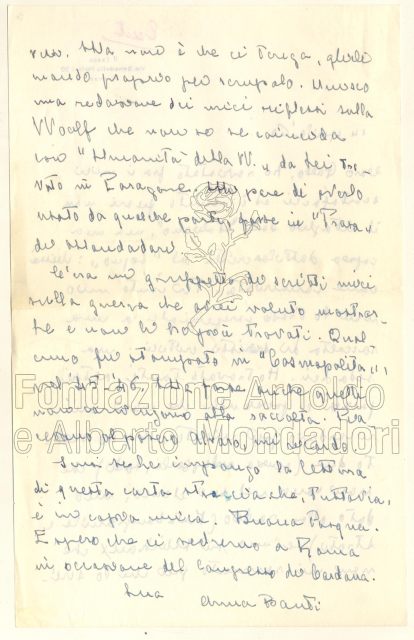 ren. Ma non è che ci tenga, glielo
mando proprio per scrupolo. Unisco
una redazione dei miei riflessi sulla
Woolf che non so se coincida
con "Umanità della W." da Lei tro-
vato in Paragone. Mi pare di averlo
usato da qualche parte, forse in "Prosa"
di Mondadori.
C'era un gruppetto di scritti miei
sulla guerra che avrei voluto mostrar-
Le e non li ho più trovati. Qual-
cuno fu stampato in "Cosmopolita",
nel 45-46. Ma forse anche quelli
non convengono alla raccolta.
al povero Alvaro, mi ricordo.
Scusi se Le impongo la lettura
di questa carta straccia che, tuttavia,
è in copia unica. Buona Pasqua.
E spero che ci vedremo a Roma
in occasione del Congresso di
Sua
Anna Banti
Fondazione Arnoldo
e Alberto Mondadori